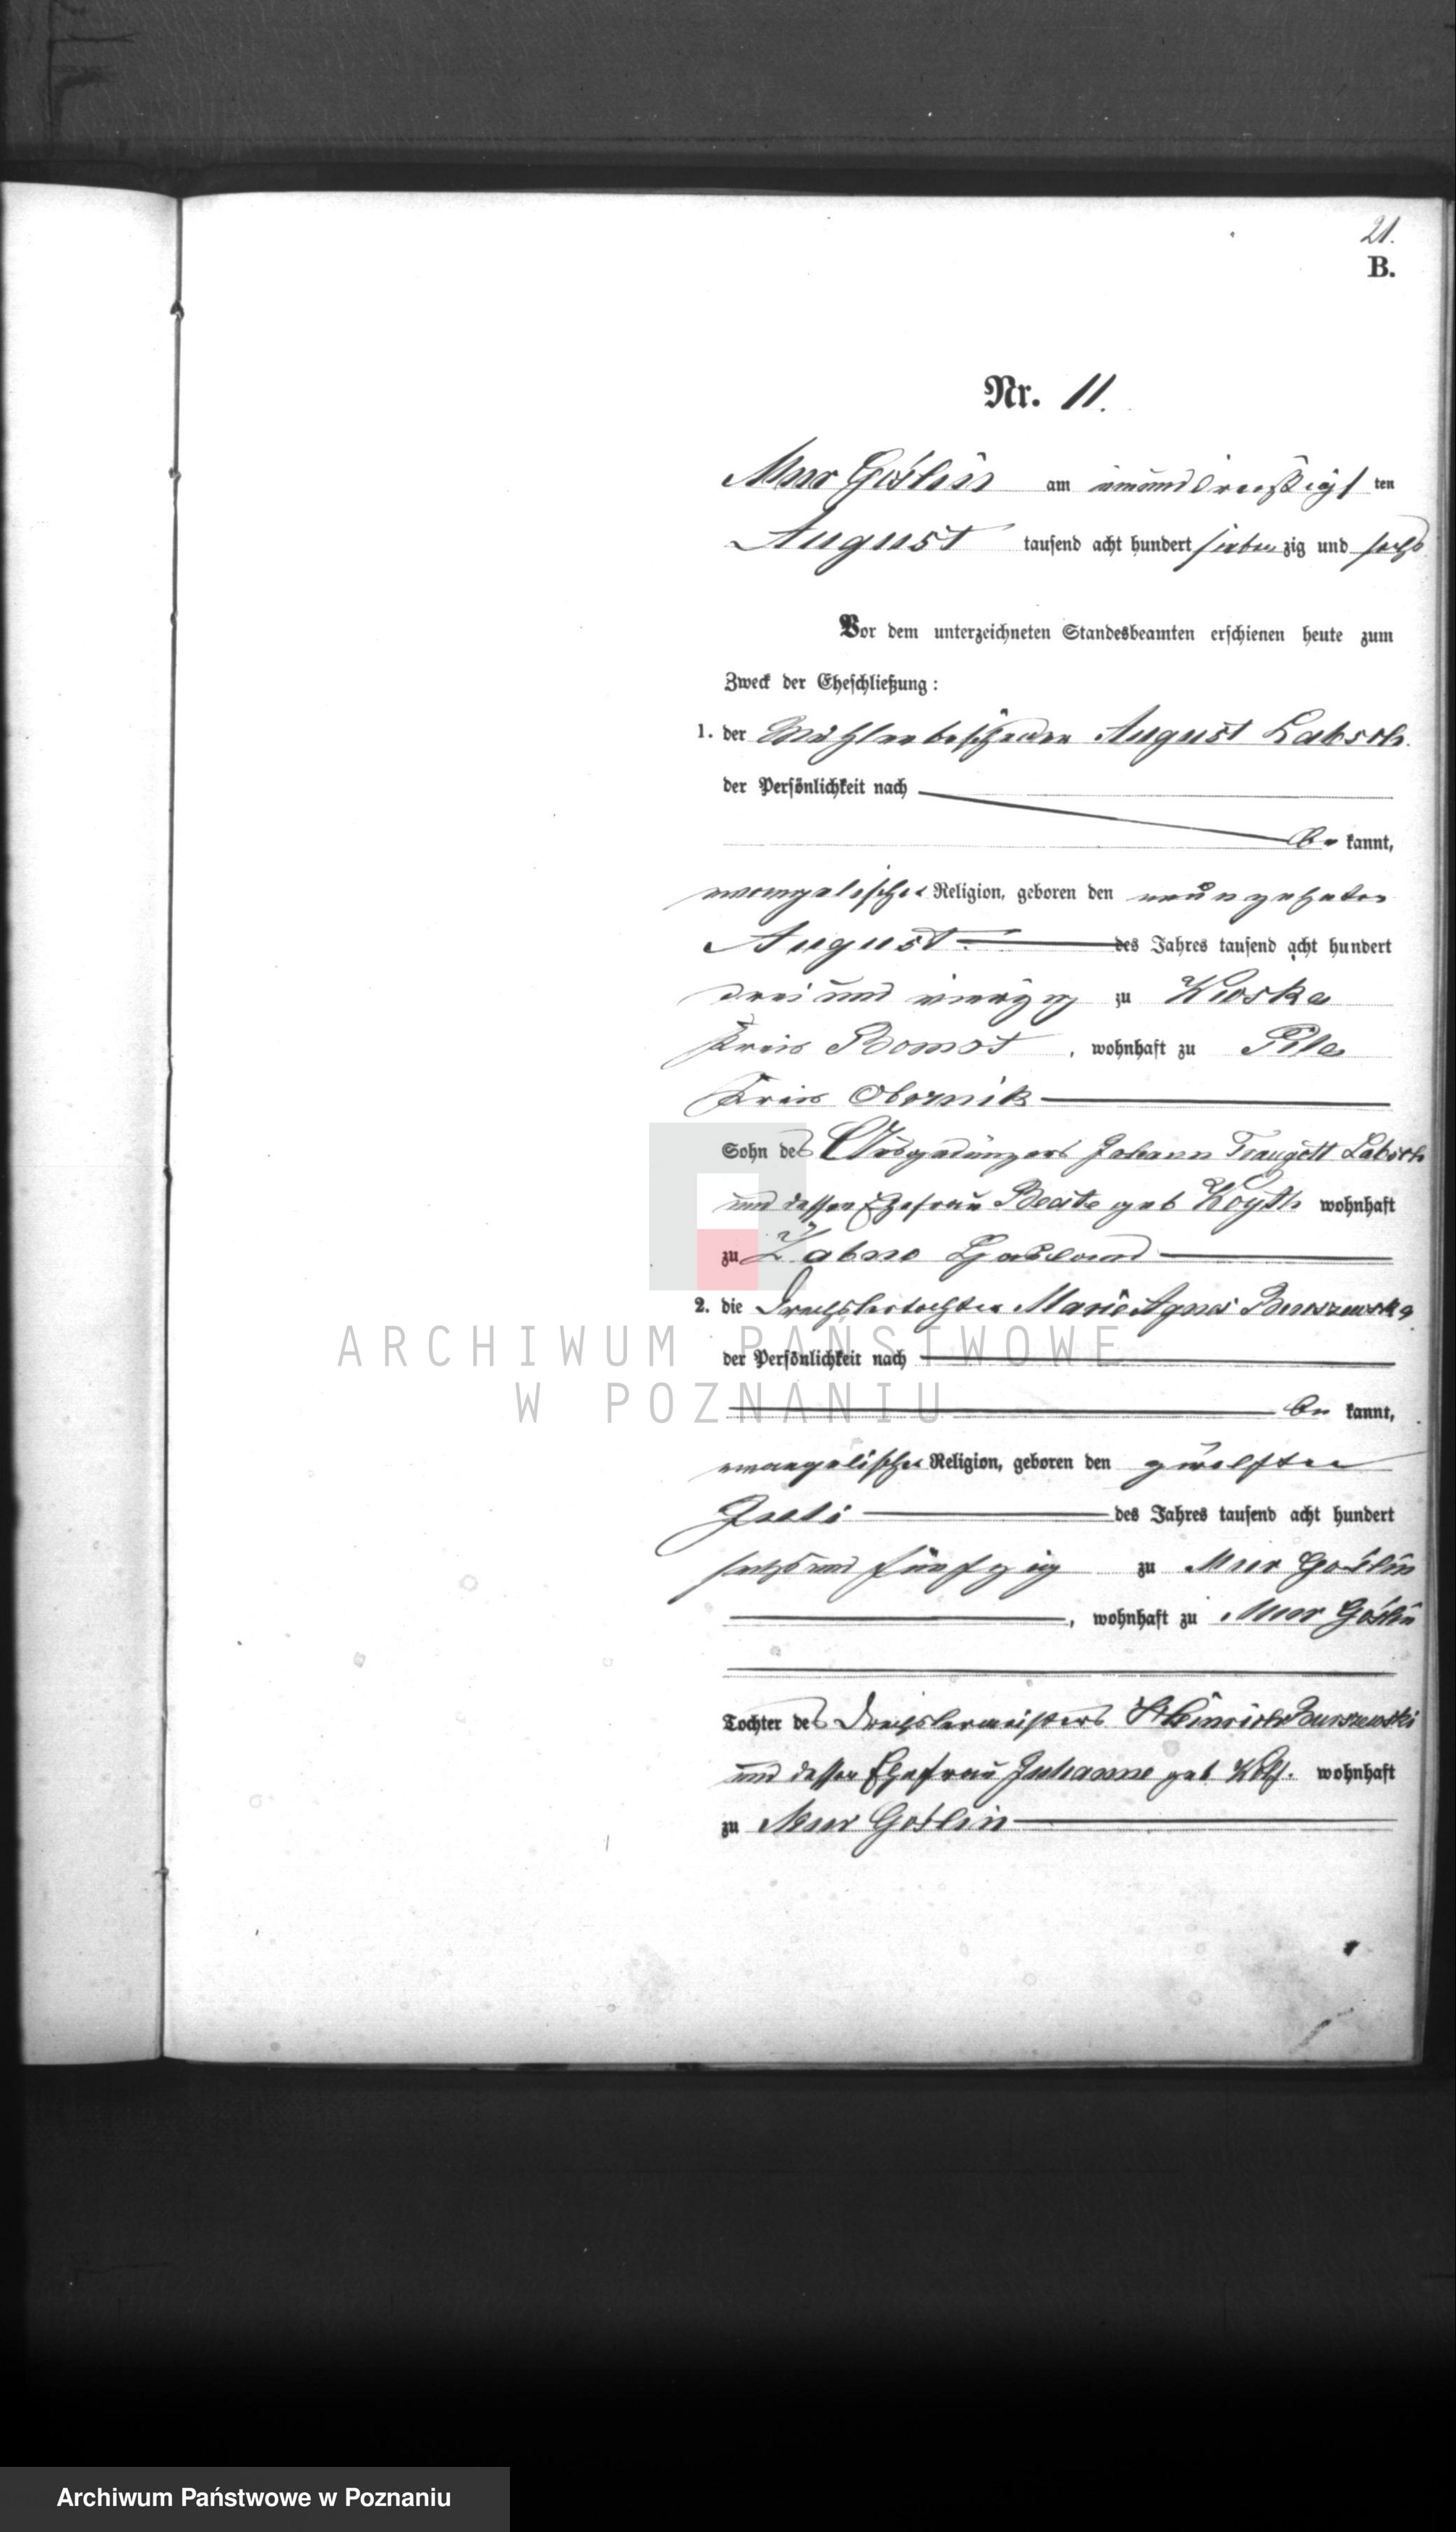 21.
B.
Nr. 11.
Mur Goślin am einunddreißigsten
August tausend acht hundert siebenzig und sechs
Vor dem unterzeichneten Standesbeamten erschienen heute zum
Zweck der Eheschließung:
1. der Mühlenbescheider August Labsch.
der Persönlichkeit nach
be kannt,
evangelischer Religion, geboren den neunzehnten
August des Jahres tausend acht hundert
drei und vierzig zu Kroska
Kreis Bomst, wohnhaft zu Pila
Kreis Obornik
Sohn des Ausgedingers Johann Traugott Labsch
und dessen Ehefrau Beate geb wohnhaft
zu Żabno
2. die Drechslertochter Marie Agnes Buszewska
der Persönlichkeit nach
be kannt,
evangelischer Religion, geboren den zwölften
Juli des Jahres tausend acht hundert
sechs und fünfzig zu Mur Goślin
, wohnhaft zu Mur Goślin
Tochter des Drechslermeisters Heinrich Buszewski
und dessen Ehefrau Johanne geb wohnhaft
zu Mur Goślin
ARCHIWUM PAŃSTWOWE
W POZNANIU
Archiwum Państwowe w Poznaniu